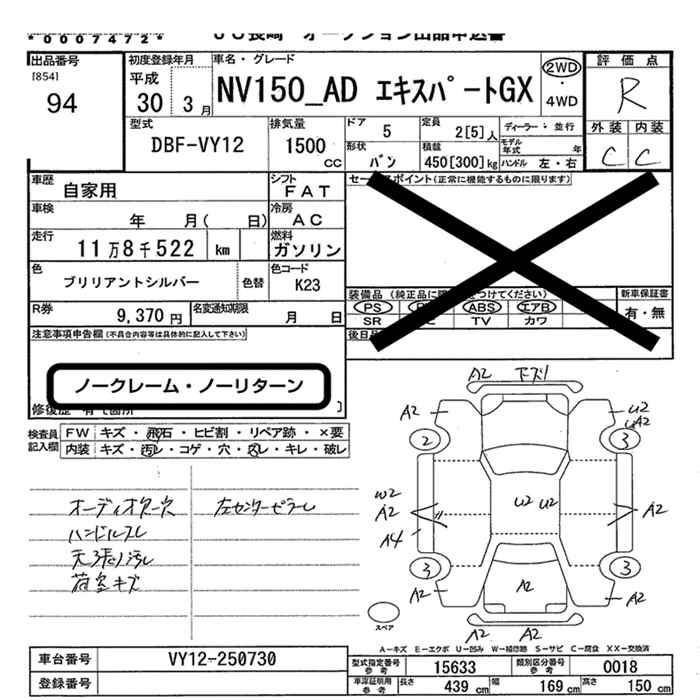 *0007472*
JU長崎 オークション出品申込書
出品番号
[854]
94
初度登録年月
平成
30 3 月
車名・グレード
NV150_AD エキスパートGX
2WD
・
4WD
評価点
R
外装 内装
C C
型式
DBF-VY12
排気量
1500
CC
ドア
5
定員
2[5]人
ディーラー・並行
形状
バン
積載
450[300]kg
モデル年式 年
ハンドル 左・右
車歴
自家用
シフト
FAT
車検
年 月( 日)
冷房
AC
走行
11万8千522 km
燃料
ガソリン
色
ブリリアントシルバー
色替
色コード
K23
R券
9,370 円
名変通知期限
月 日
セールスポイント(正常に機能するものに限ります)
装備品
新車保証書
有・無
PS ABS エアB
SR TV カワ
後日品
注意事項申告欄(不具合内容等は具体的に記入して下さい)
ノークレーム・ノーリターン
修復歴 有( 箇所 )
検査員
記入欄
FW キズ・飛石・ヒビ割・リペア跡・×要
内装 キズ・汚レ・コゲ・穴・スレ・キレ・破レ
オーディオ穴
ハンドルスレ
天張り汚レ
荷室キズ
左センターピラーレ
A2 下ズリ
A2 U2
A2
2 3
W2
A2
A4
U2 U2
A2
3 3
A2 A2 A2
A2 A2
スペア
A-キズ E-エクボ U-凹み W-補修跡 S-サビ C-腐食 XX-交換済
車台番号
VY12-250730
登録番号
型式指定番号
参考
15633
類別区分番号
参考
0018
車庫証明用
参考
長さ 439 cm 幅 169 cm 高さ 150 cm